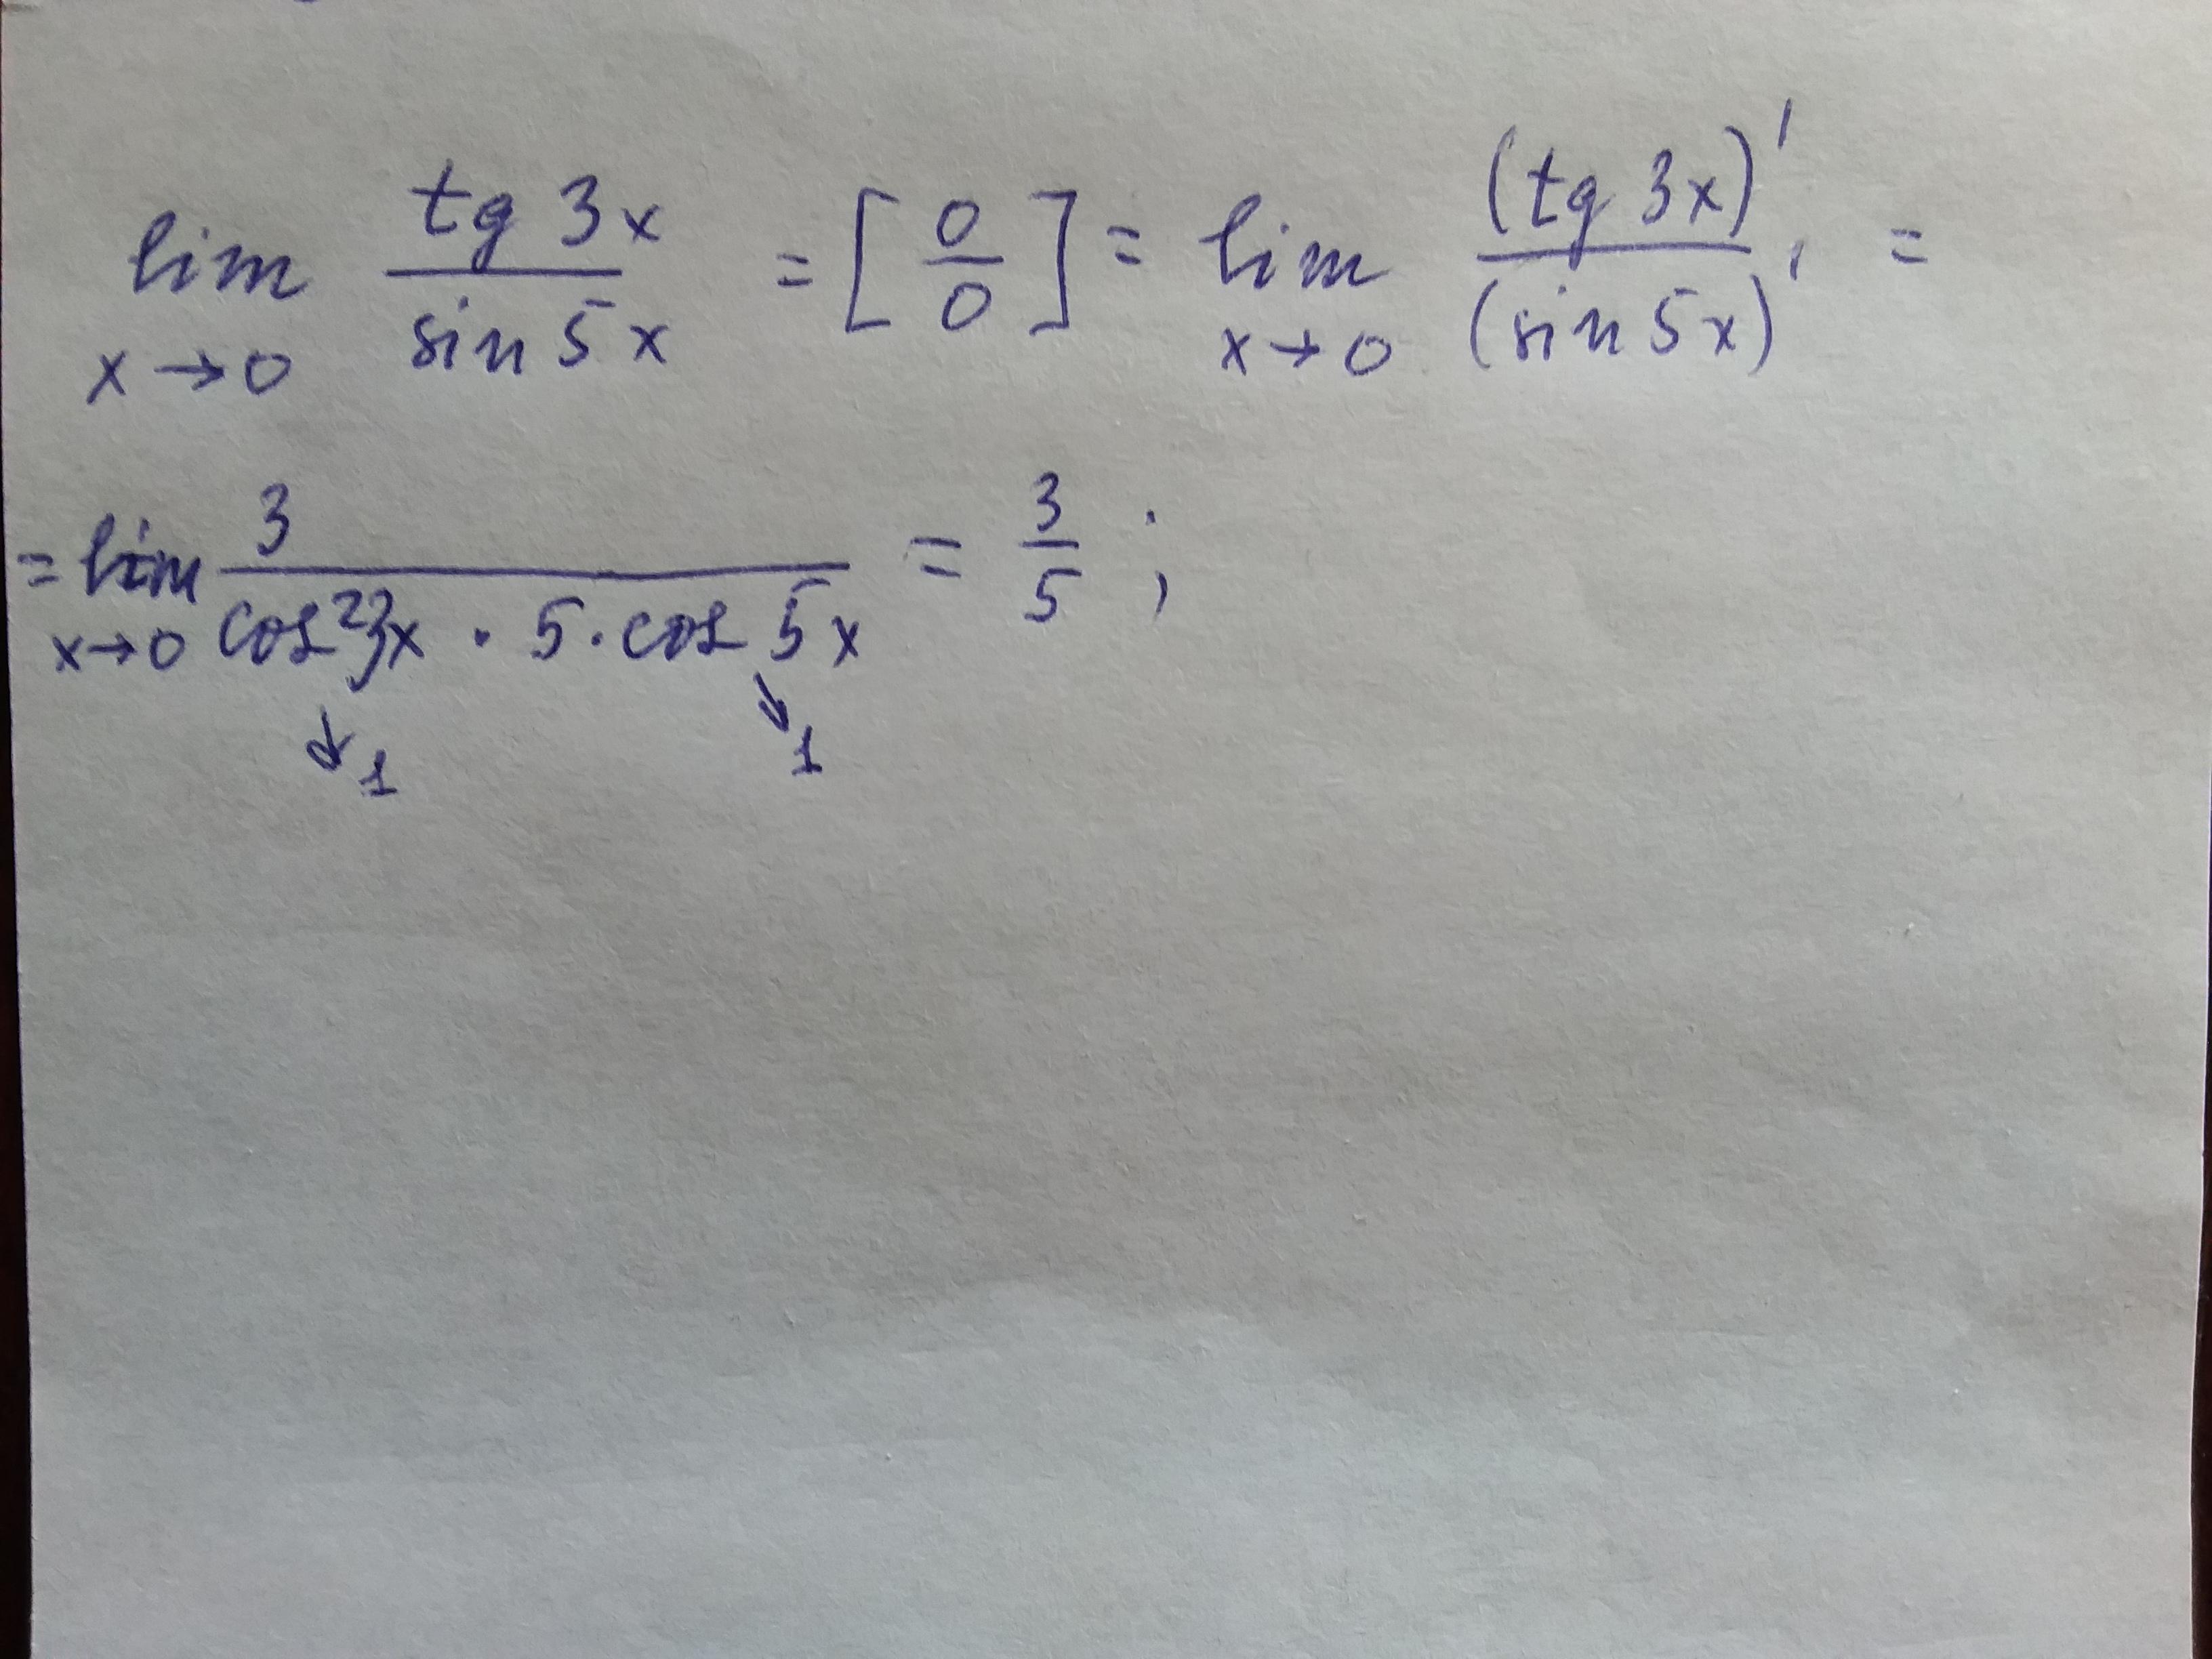 lim x→0 tg 3x / sin 5x = [0/0] = lim x→0 (tg 3x)' / (sin 5x)' =
= lim x→0 3 / cos² 3x · 5 · cos 5x = 3/5 ;
↓ 1 ↘ 1